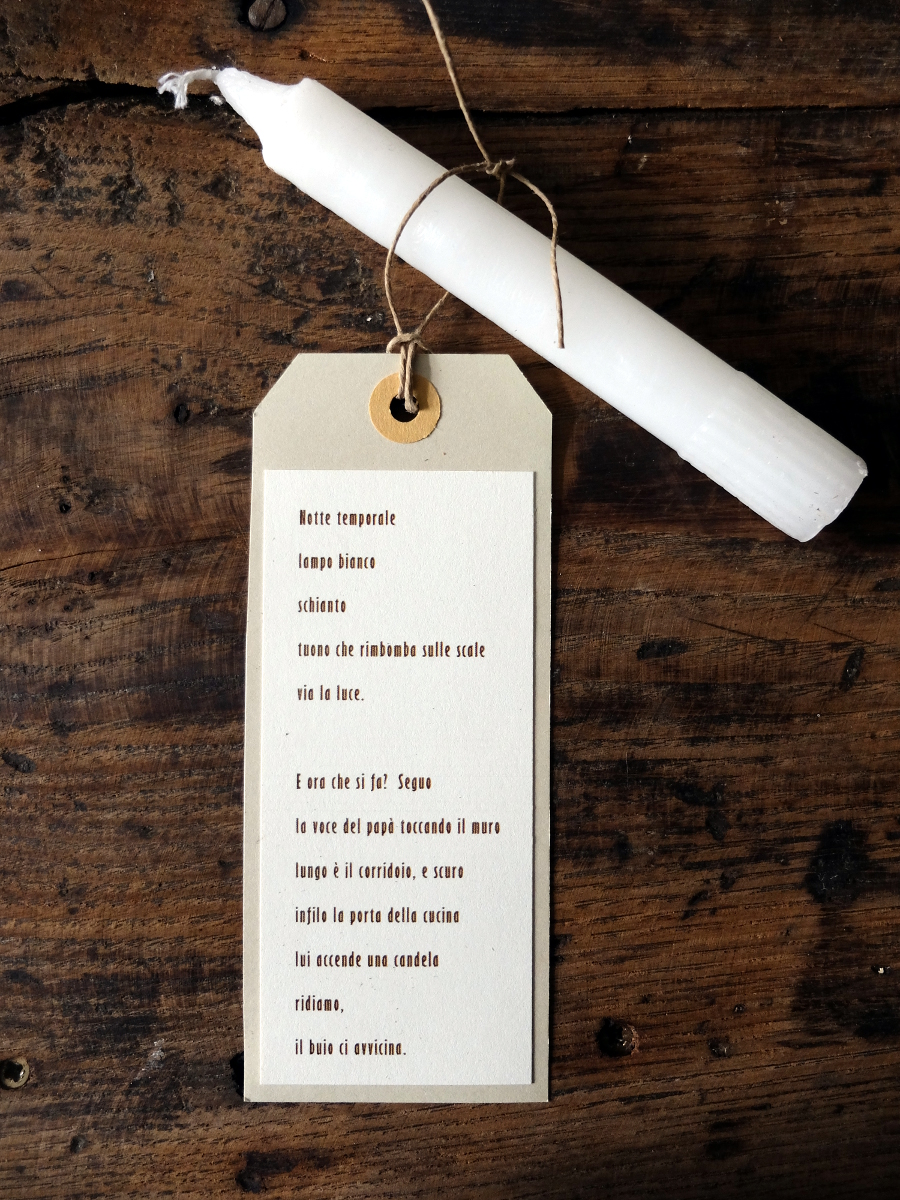 Notte temporale
lampo bianco
schianto
tuono che rimbomba sulle scale
via la luce.
E ora che si fa? Seguo
la voce del papà toccando il muro
lungo è il corridoio, e scuro
infilo la porta della cucina
lui accende una candela
ridiamo,
il buio ci avvicina.